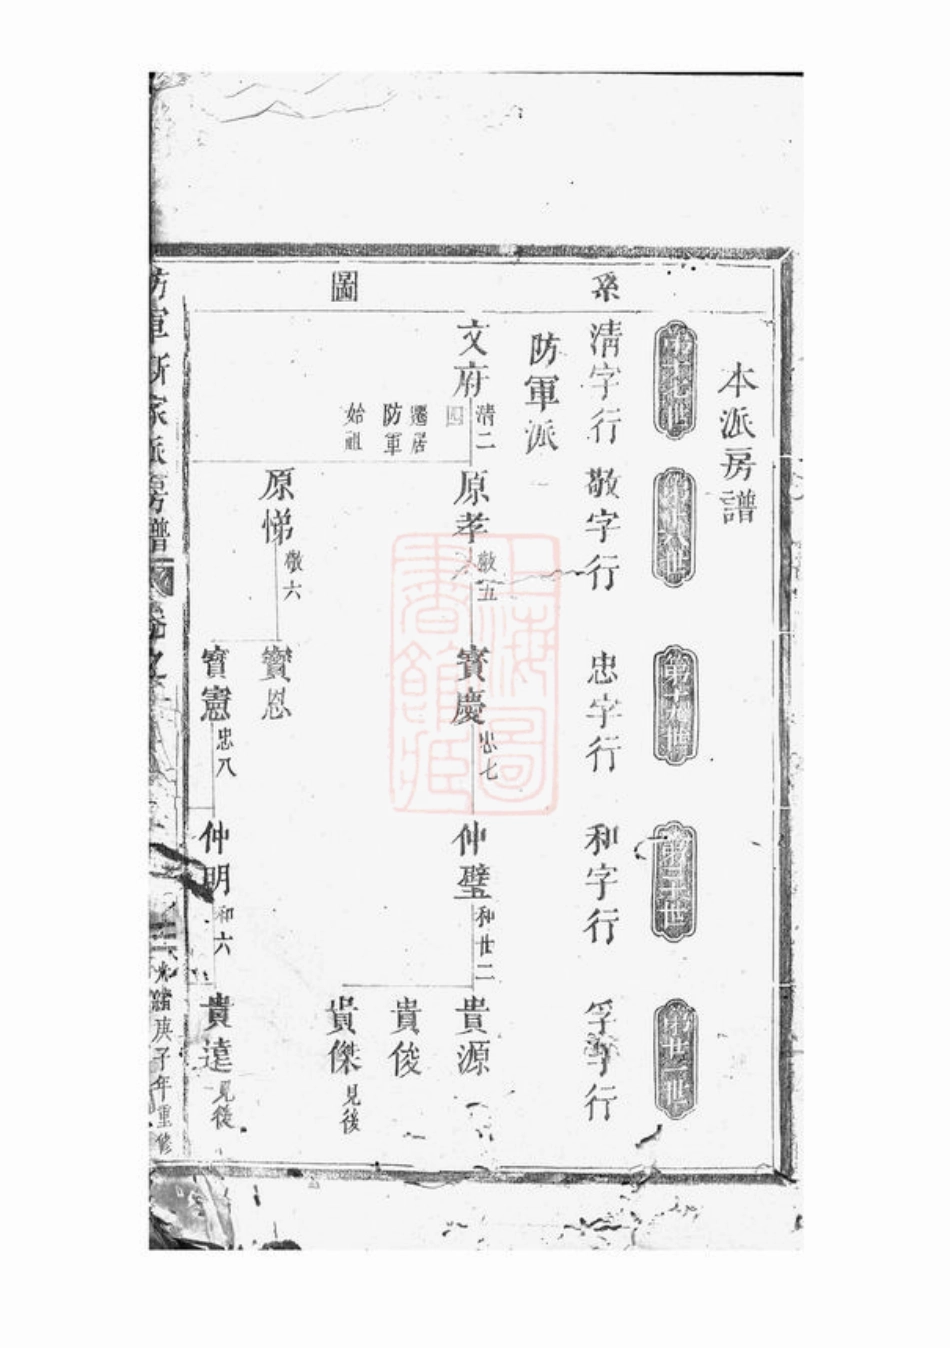 系圖
本派房譜
第十七世
第十八世
第十九世
第二十世
第廿一世
清字行
敬字行
忠字行
和字行
孚字行
防軍派
文府
清二
四
遷居
防軍
始祖
原孝
敬五
寶慶
忠七
仲璧
和廿二
貴源
貴俊
貴傑
見後
原悌
敬六
寶恩
寶憲
忠八
仲明
和六
貴達
見後
防軍斯家派房譜
卷之
光緒庚子年重修
上海圖書館藏